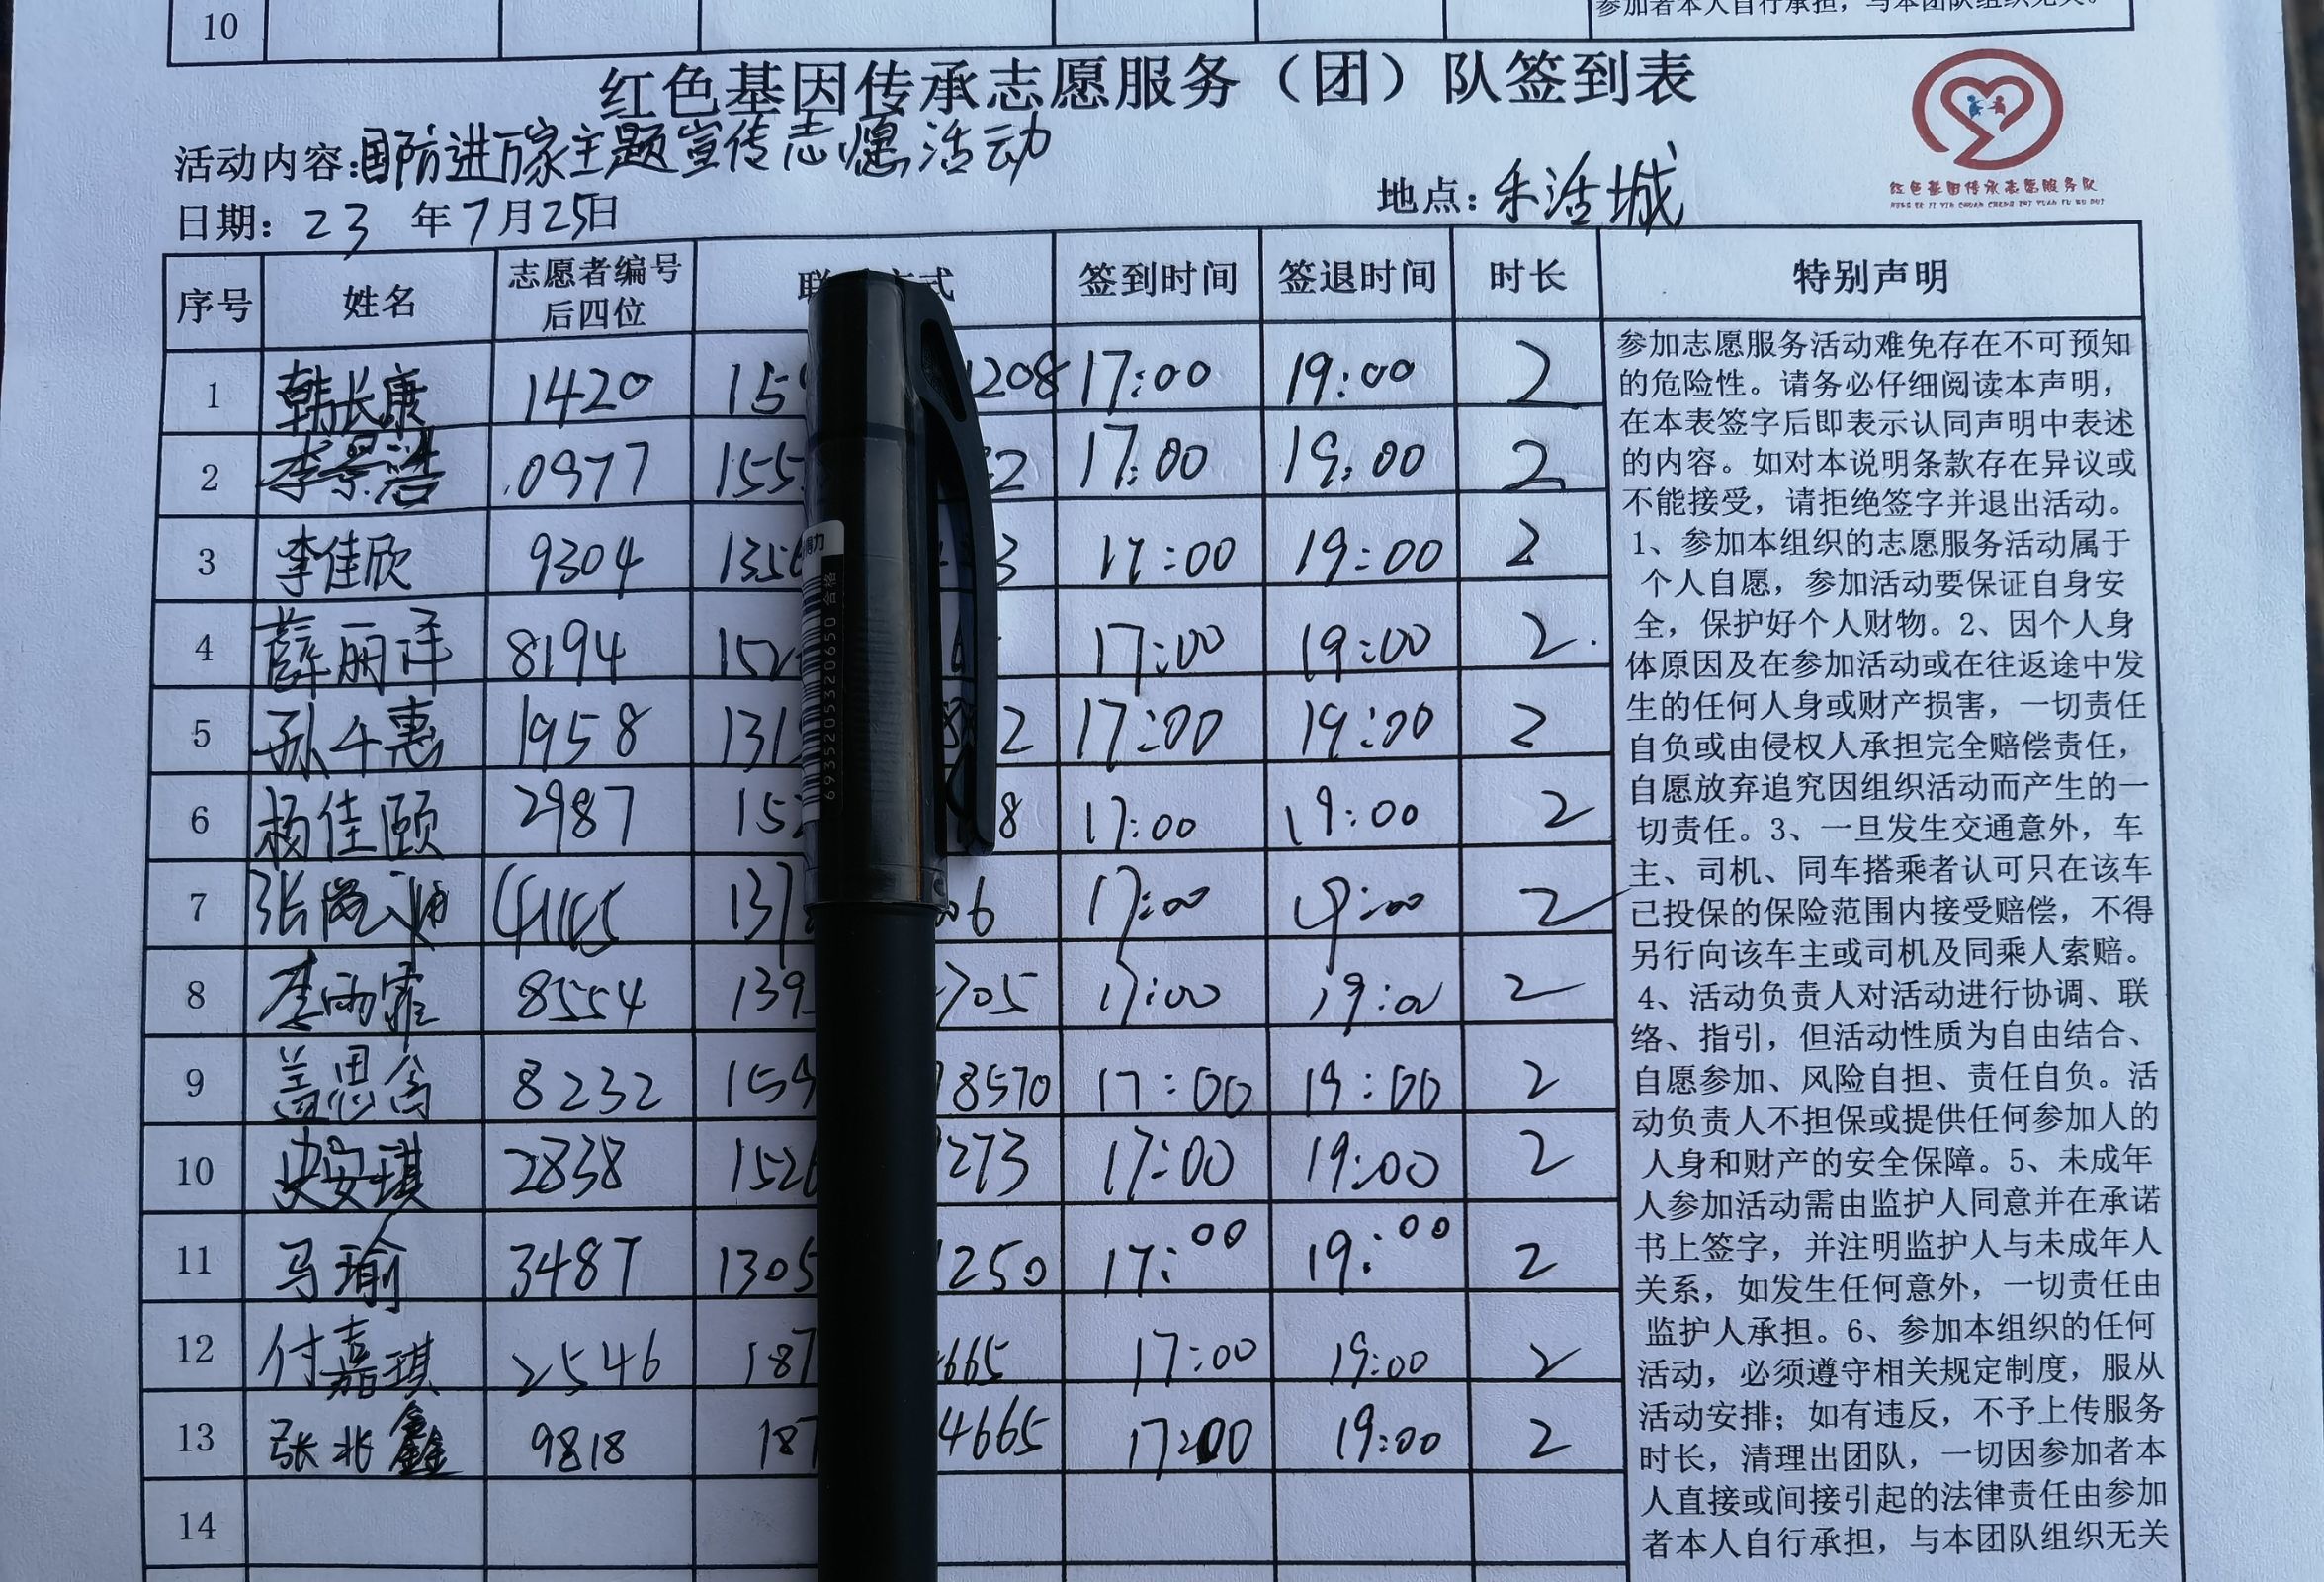 10
参加者本人自行承担，与本团队组织无关。
红色基因传承志愿服务（团）队签到表
红色基因传承志愿服务队
HONG SE JI YIN CHUAN CHENG ZHI YUAN FU WU DUI
活动内容:国防进万家主题宣传志愿活动
日期: 23 年7月25日 地点: 乐活城
序号 姓名 志愿者编号后四位 联 式 签到时间 签退时间 时长 特别声明
1 韩长康 1420 15 1208 17:00 19:00 2
2 李景浩 0977 155 2 17:00 19:00 2
3 李佳欣 9304 1356 3 17:00 19:00 2
4 薛丽洋 8194 152 17:00 19:00 2
5 孙千惠 1958 131 2 17:00 19:00 2
6 杨佳颐 2987 15 8 17:00 19:00 2
7 张 137 06 17:00 19:00 2
8 李雨霏 8554 139 705 17:00 19:00 2
9 盖思含 8232 159 8570 17:00 19:00 2
10 史安琪 2838 1526 273 17:00 19:00 2
11 马瑜 3487 1305 1250 17:00 19:00 2
12 付嘉琪 2546 187 4665 17:00 19:00 2
13 张北鑫 9818 187 4665 17:00 19:00 2
14
参加志愿服务活动难免存在不可预知
的危险性。请务必仔细阅读本声明，
在本表签字后即表示认同声明中表述
的内容。如对本说明条款存在异议或
不能接受，请拒绝签字并退出活动。
1、参加本组织的志愿服务活动属于
个人自愿，参加活动要保证自身安
全，保护好个人财物。2、因个人身
体原因及在参加活动或在往返途中发
生的任何人身或财产损害，一切责任
自负或由侵权人承担完全赔偿责任，
自愿放弃追究因组织活动而产生的一
切责任。3、一旦发生交通意外，车
主、司机、同车搭乘者认可只在该车
已投保的保险范围内接受赔偿，不得
另行向该车主或司机及同乘人索赔。
4、活动负责人对活动进行协调、联
络、指引，但活动性质为自由结合、
自愿参加、风险自担、责任自负。活
动负责人不担保或提供任何参加人的
人身和财产的安全保障。5、未成年
人参加活动需由监护人同意并在承诺
书上签字，并注明监护人与未成年人
关系，如发生任何意外，一切责任由
监护人承担。6、参加本组织的任何
活动，必须遵守相关规定制度，服从
活动安排；如有违反，不予上传服务
时长，清理出团队，一切因参加者本
人直接或间接引起的法律责任由参加
者本人自行承担，与本团队组织无关
得力
6935205320650 合格